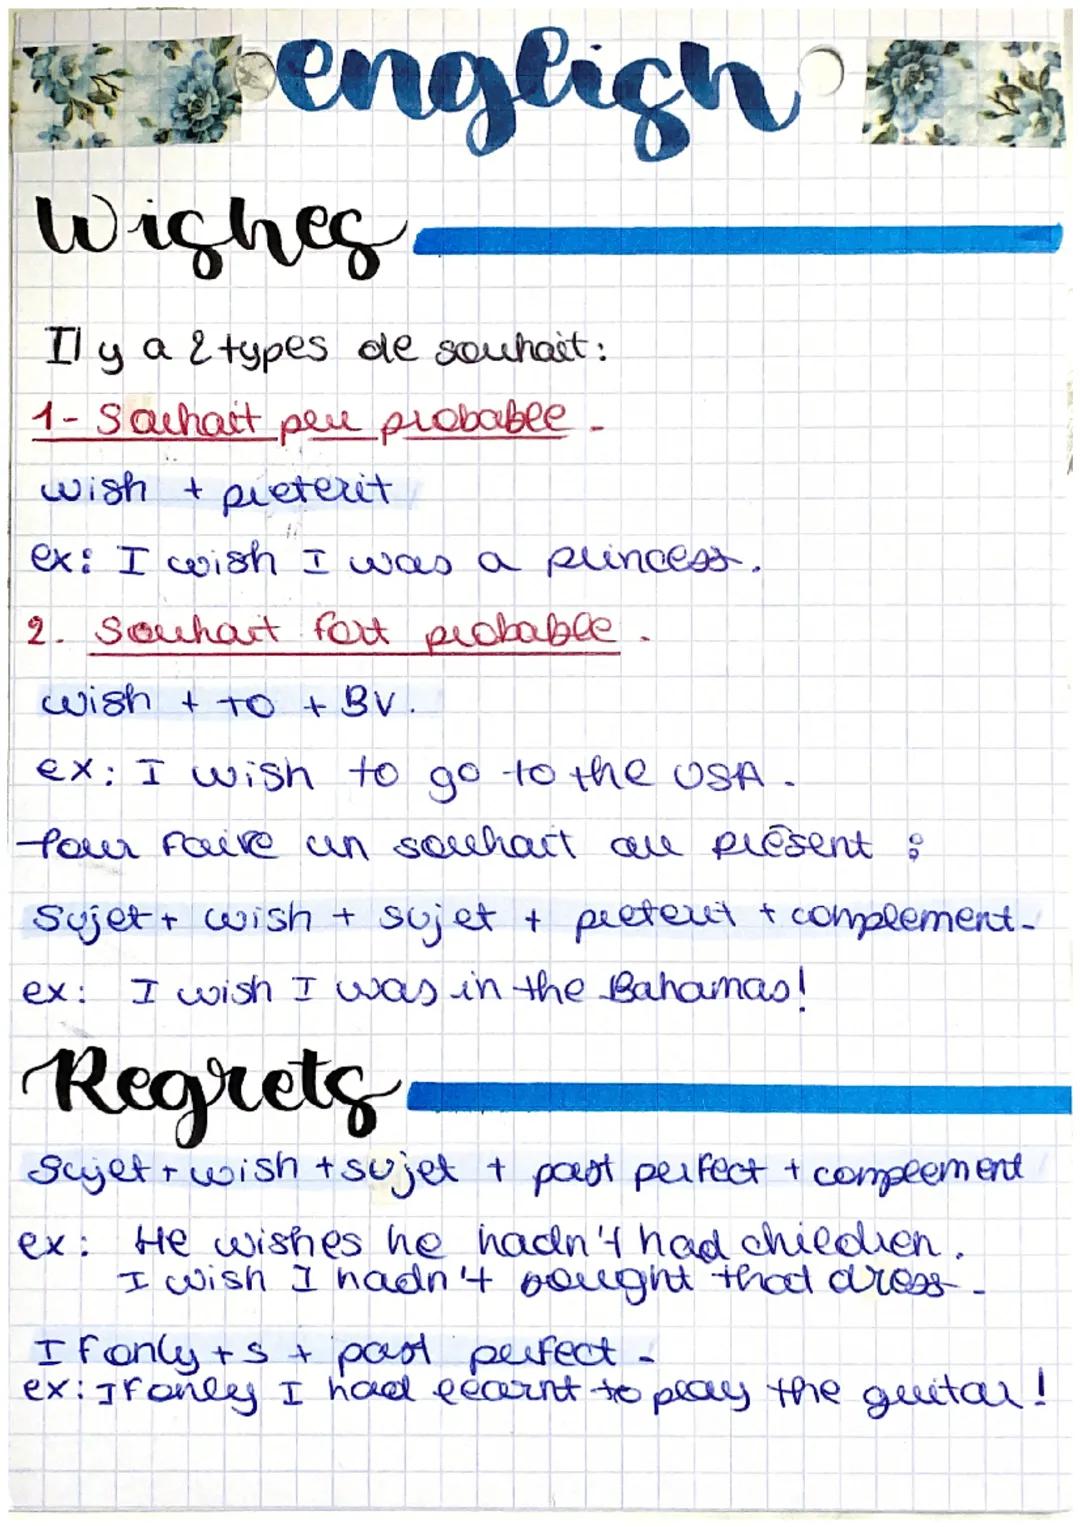 english
Wishes
Il y a 2 types de souhait :
1- Souhait peu probable -
wish + preterit
ex: I wish I was a princess.
2. Souhait fort probable.
wish + to + BV.
ex: I wish to go to the USA.
Pour faire un souhait au présent :
Sujet + wish + sujet + preterit + complement.
ex: I wish I was in the Bahamas!
Regrets
Sujet + wish + sujet + past perfect + complement
ex: He wishes he hadn't had children.
I wish I hadn't bought that dress.
If only + s + past perfect.
ex: If only I had learnt to play the guitar !